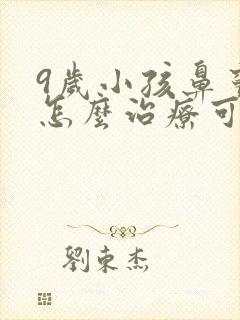 9歲小孩鼻
怎麼治療可
劉東杰